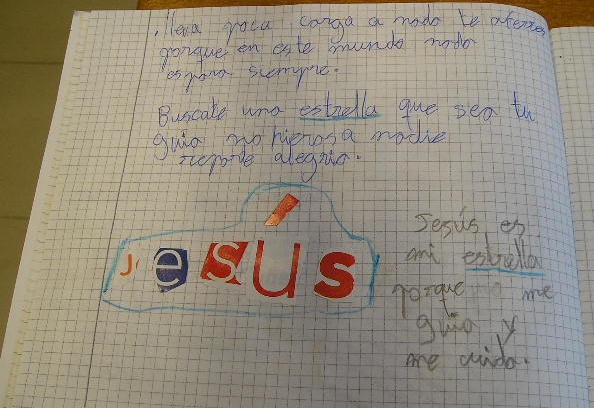 . lleva poca carga a nada te aferres
porque en este mundo nada
es para siempre.
Buscate una estrella que sea tu
guia no hieras a nadie
reparte alegria.
JesÚs
Jesús es
mi estrella
porque me
guia y
me cuida.